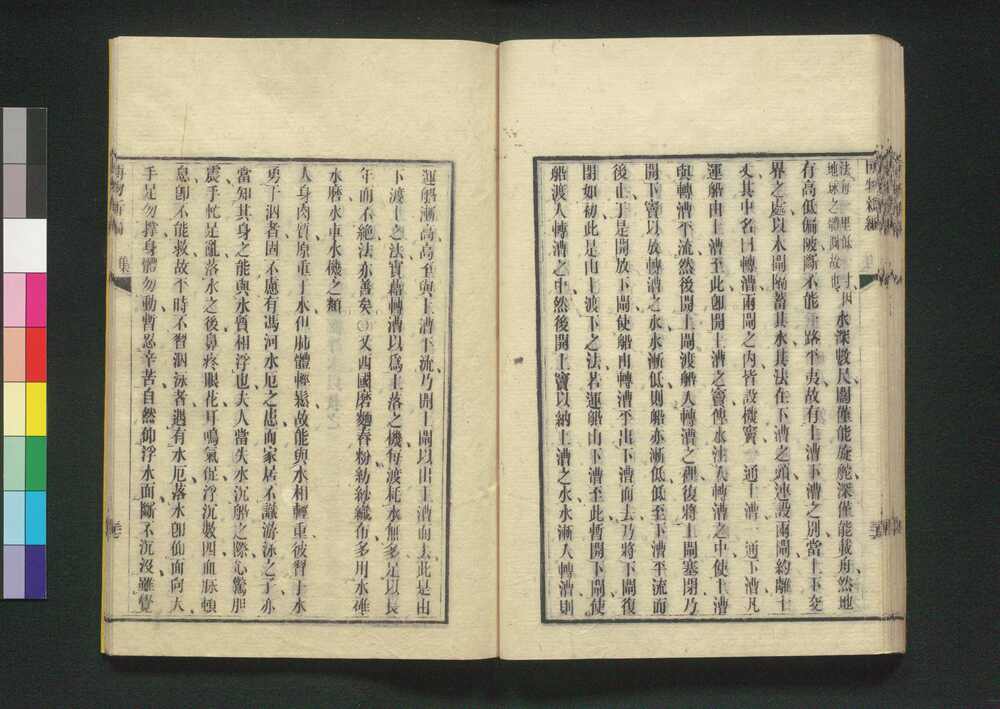 水深數尺闊僅能旋舵深僅能載舟然地
有高低偏陂斷不能路平夷故有上漕下漕之別當上下交
界之處以木閘隔蓄其水其法在下漕之頭連設兩閘約離十
丈其中名曰轉漕兩閘之內皆設機竇一通上漕一通下漕凡
運船由上漕至此卽開上漕之竇俾水注入轉漕之中使上漕
與轉漕平流然後開上閘渡船入轉漕之裡復將上閘塞閉乃
開下竇以放轉漕之水水漸低則船亦漸低低至下漕平流而
後止于是開放下閘使船由轉漕乎出下漕而去乃將下閘復
閉如初此是由上渡下之法若運船由下漕至此暫開下閘使
船渡入轉漕之中然後開上竇以納上漕之水水漸入轉漕則
運船漸高高至與上漕平流乃開上閘以出上漕而去此是由
下渡上之法實藉轉漕以爲上落之機每渡耗水無多足以長
年而不絶法亦善矣○又西國磨麵舂粉紡紗織布多用水碓
水磨水車水機之類
人身肉質原重于水但肺體輕鬆故能與水相輕重彼習于水
勇于泅者固不慮有馮河水厄之患而家居不識游泳之子亦
當知其身之能與水質相浮也夫人當失水沉船之際心驚胆
震手忙足亂落水之後鼻疼眼花耳鳴氣促浮沉數四血脈頓
息卽不能救故平時不習泅泳者遇有水厄落水卽仙面向天
手足勿撑身體勿動暫忍辛苦自然仰浮水面斷不沉没雖覺
集